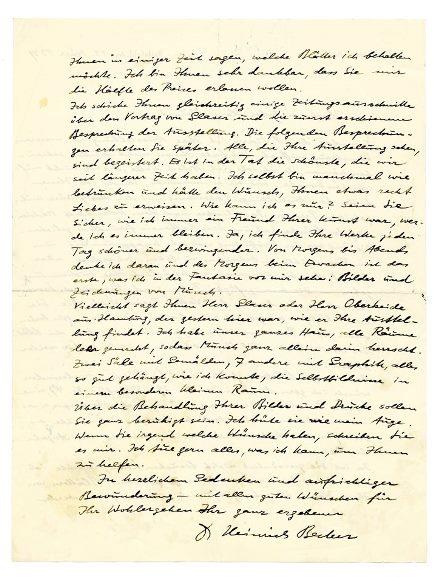 Ihnen in einiger Zeit sagen, welche Blätter ich behalten
möchte. Ich bin Ihnen sehr dankbar, dass Sie mir
die Hälfte des Preises erlassen wollen.
Ich schicke Ihnen gleichzeitig einige Zeitungsausschnitte
über den Vortrag von Glaser und die zuerst erschienene
Besprechung der Ausstellung. Die folgenden Besprechun-
gen erhalten Sie später. Alle, die Ihre Ausstellung sehen,
sind begeistert. Es ist in der Tat die schönste, die wir
seit längerer Zeit haben. Ich selbst bin manchmal wie
betrunken und hätte den Wunsch, Ihnen etwas recht
Liebes zu erweisen. Wie kann ich es nur? Seien Sie
sicher, wie ich immer ein Freund Ihrer Kunst war, wer-
de ich es immer bleiben. Ja, ich finde Ihre Werke jeden
Tag schöner und bezwingender. Von Morgens bis Abends
denke ich daran und des Morgens beim Erwachen ist das
erste, was ich in der Fantasie vor mir sehe: Bilder und
Zeichnungen von Munch.
Vielleicht sagt Ihnen Herr Glaser oder Herr Oberheide
aus Hamburg, der gestern hier war, wie er Ihre Ausstel-
lung findet. Ich habe unser ganzes Haus, alle Räume
leer gemacht, sodass Munch ganz allein darin herrscht.
Zwei Säle mit Gemälden, 7 andere mit Graphik, alles
so gut gehängt, wie ich konnte, die Selbstbildnisse in
einem besondern kleinen Raum.
Über die Behandlung Ihrer Bilder und Drucke sollen
Sie ganz beruhigt sein. Ich hüte sie wie mein Auge.
Wenn Sie irgend welche Wünsche haben, schreiben Sie
es mir. Ich tue gern alles, was ich kann, um Ihnen
zu helfen.
In herzlichem Gedenken und aufrichtiger
Bewunderung – mit allen guten Wünschen für
Ihr Wohlergehen Ihr ganz ergebener
Dr Heinrich Becker